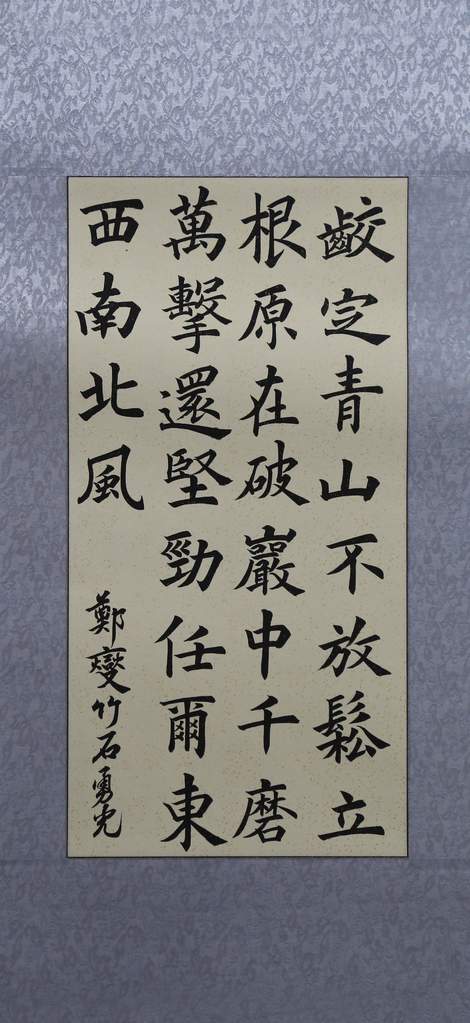 齩定青山不放鬆立
根原在破巖中千磨
萬擊還堅勁任爾東
西南北風
鄭燮竹石勇光